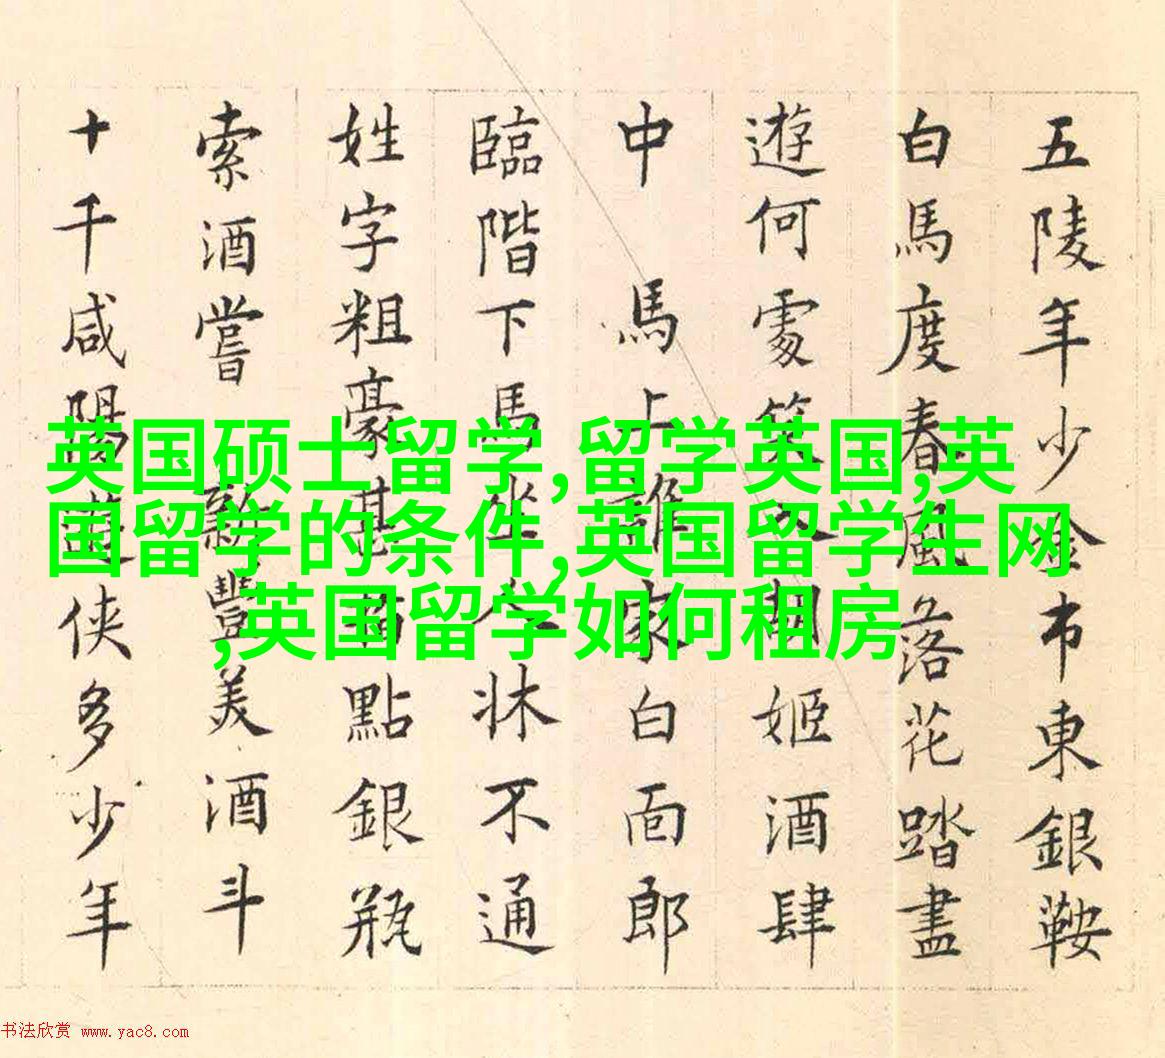 五陵年少金市東銀鞍
白馬度春風落花踏盡
遊何處笑入胡姬酒肆
中 馬上誰家白面郎
臨階下馬坐人牀不通
姓字粗豪甚指點銀瓶
索酒嘗 新豐美酒斗
十千咸陽遊侠多少年
英国硕士留学,留学英国,英
国留学的条件,英国留学生网
,英国留学如何租房
书法欣赏 www.yac8.com